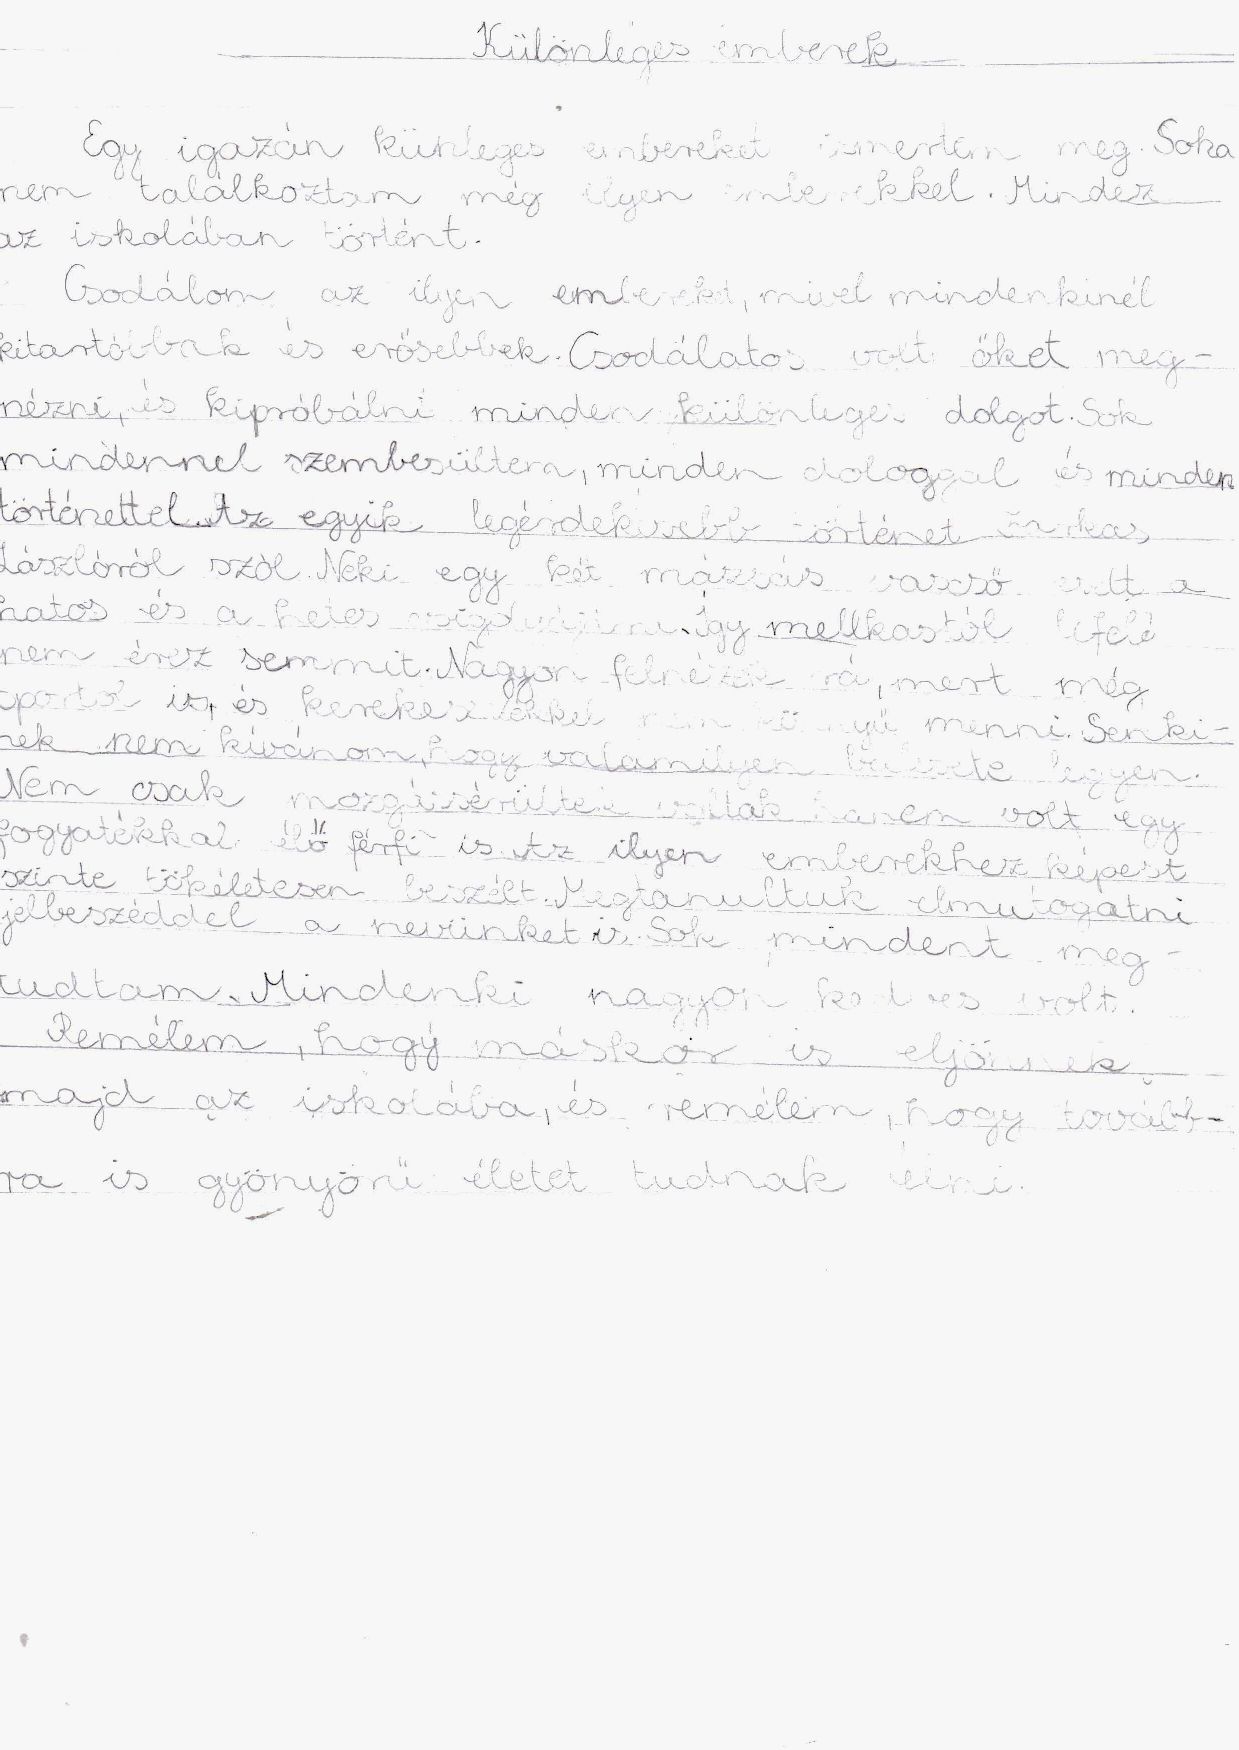 Különleges emberek
Egy igazán künleges embereket ismertem meg. Soha
nem találkoztam még ilyen emberekkel. Mindez
az iskolában történt.
Csodálom az ilyen embereket, mivel mindenkinél
kitartóbbak és erősebbek. Csodálatos volt őket meg-
nézni, és kipróbálni minden különleges dolgot. Sok
mindennel szembesültem, minden dologgal és minden
történettel. Az egyik legérdekesebb történet Farkas
Lászlóról szól. Neki egy két mázsás vascső esett a
hatos és a hetes csigolyájára. Így mellkastól lefelé
nem érez semmit. Nagyon felnézek rá, mert még
sportol is, és kerekesszékkel nem könnyű menni. Senki-
nek nem kívánom, hogy valamilyen balesete legyen.
Nem csak mozgássérültek voltak hanem volt egy
fogyatékkal élő férfi is. Az ilyen emberekhez képest
szinte tökéletesen beszélt. Megtanultuk elmutogatni
jelbeszéddel a nevünket is. Sok mindent meg-
tudtam. Mindenki nagyon kedves volt.
Remélem, hogy máskor is eljönnek
majd az iskolába, és remélem, hogy tovább-
ra is gyönyörű életet tudnak élni.